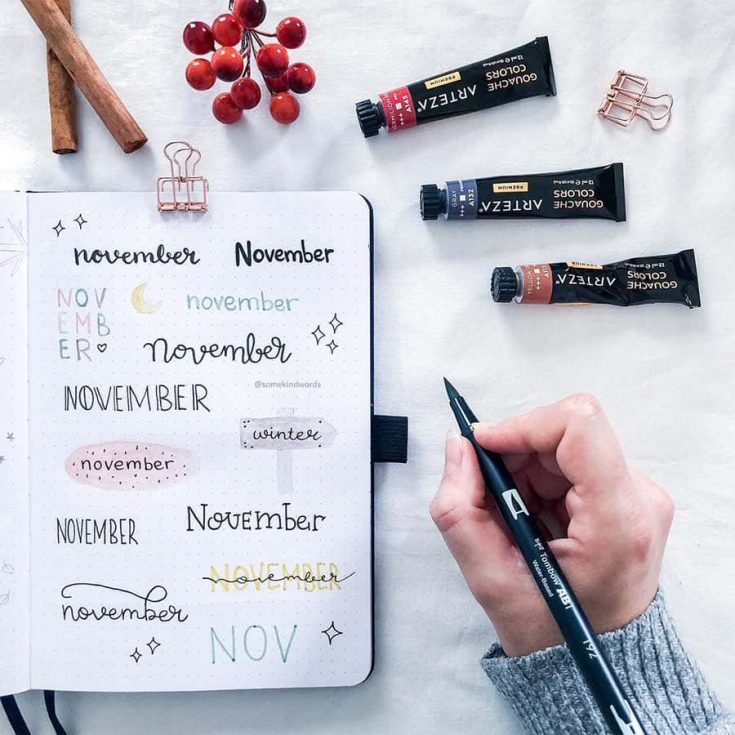 november
November
NOV
EMB
ER
november
november
@somekindwords
NOVEMBER
winter
november
NOVEMBER
November
NOVEMBER
november
november
NOV
GOUACHE
COLORS
PREMIUM
ARTEZA
GOUACHE
COLORS
PREMIUM
ARTEZA
GRAY
A132
GOUACHE
COLORS
ARTEZA
YELLOW
Tombow ABT
Water-Based